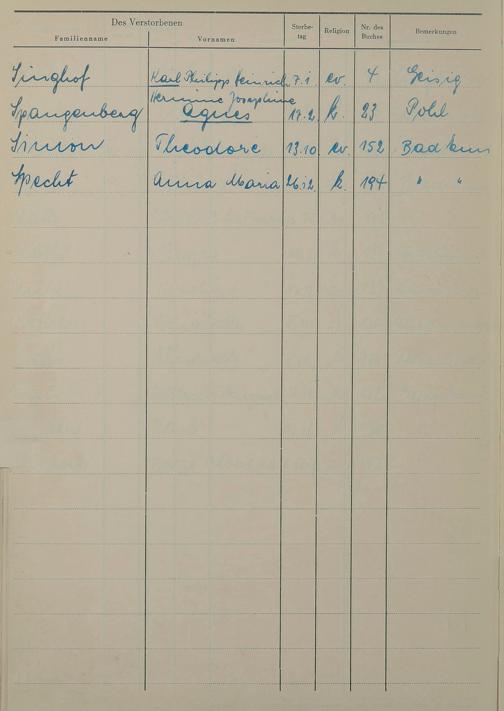 Des Verstorbenen
Familienname Vornamen Sterbe-tag Religion Nr. des Buches Bemerkungen
Singhof Karl Philipp Heinrich 7.1. ev. 4 Geisig
Hermine Josephine
Spangenberg Agnes 17.2. k. 23 Pohl
Simon Theodore 13.10 ev. 152 Bad Ems
Specht Anna Maria 26.12. k. 194 " "